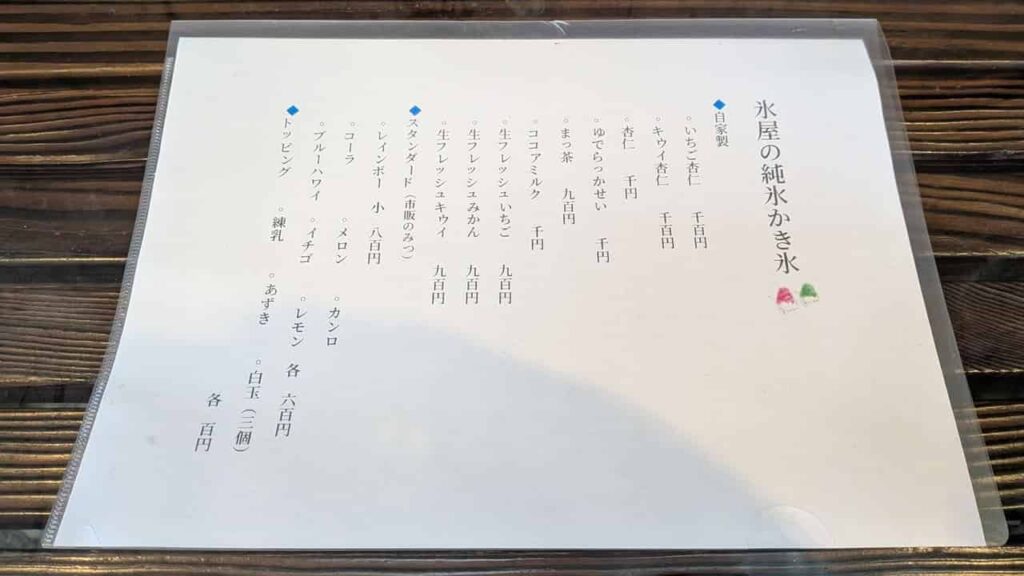 氷屋の純氷かき氷
◆自家製
○いちご杏仁 千百円
○キウイ杏仁 千百円
○杏仁 千円
○ゆでらっかせい 千円
○まっ茶 九百円
○ココアミルク 千円
○生フレッシュいちご 九百円
○生フレッシュみかん 九百円
○生フレッシュキウイ 九百円
◆スタンダード(市販のみつ)
○レインボー 小・八百円
○コーラ ○メロン ○カンロ
○ブルーハワイ ○イチゴ ○レモン 各 六百円
◆トッピング ○練乳 ○あずき ○白玉(三個)
各 百円